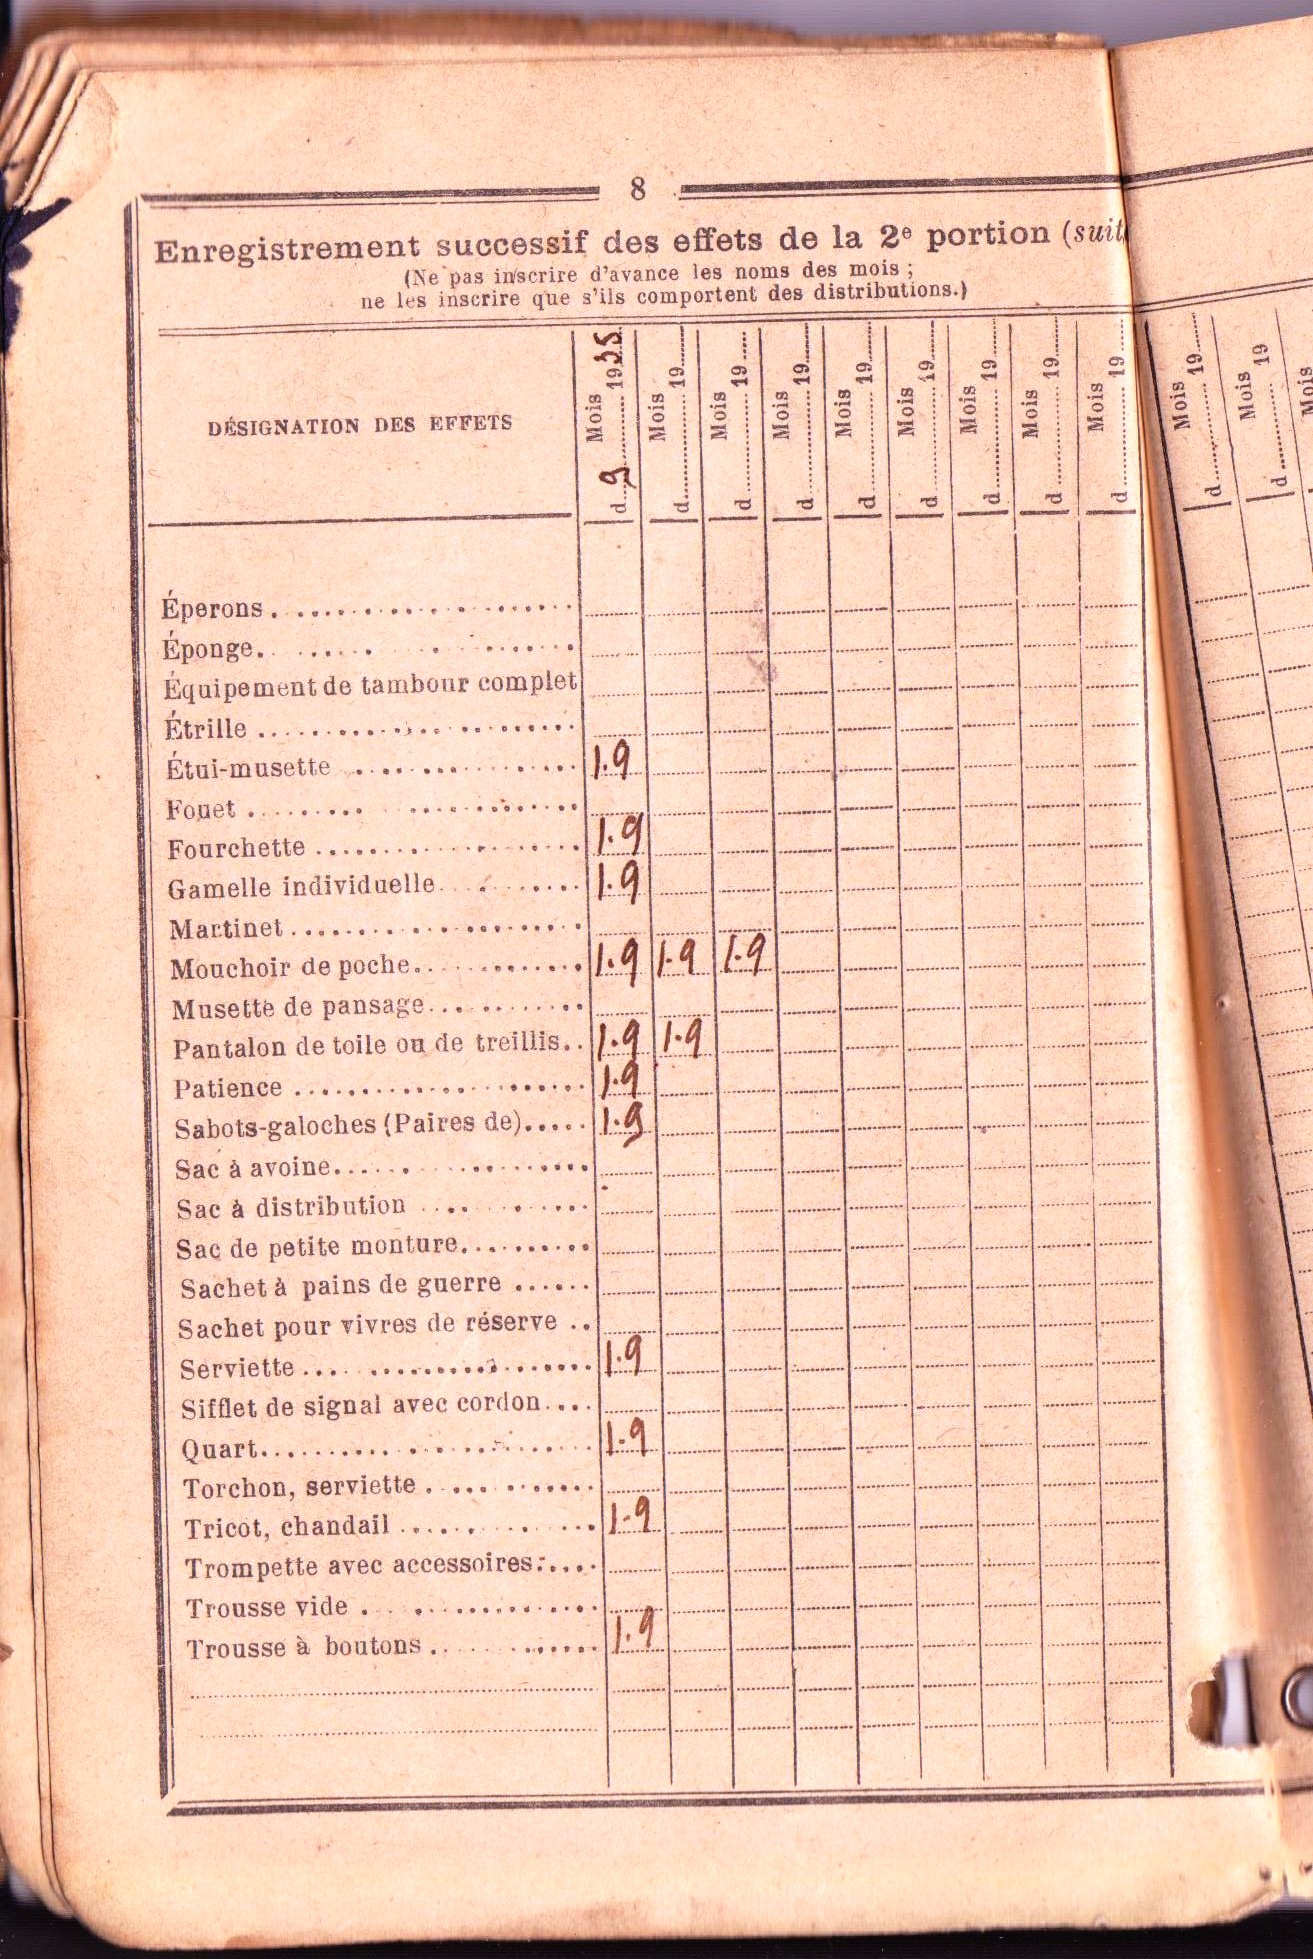 8
Enregistrement successif des effets de la 2e portion (suit
(Ne pas inscrire d'avance les noms des mois ;
ne les inscrire que s'ils comportent des distributions.)
DÉSIGNATION DES EFFETS
Mois d 9 1935
Mois d 19
Mois d 19
Mois d 19
Mois d 19
Mois d 19
Mois d 19
Mois d 19
Mois d 19
Mois d 19
Mois d 19
Mois
Éperons
Éponge
Équipement de tambour complet
Étrille
Étui-musette 1.9
Fouet
Fourchette 1.9
Gamelle individuelle 1.9
Martinet
Mouchoir de poche 1.9 1.9 1.9
Musette de pansage
Pantalon de toile ou de treillis 1.9 1.9
Patience 1.9
Sabots-galoches (Paires de) 1.9
Sac à avoine
Sac à distribution
Sac de petite monture
Sachet à pains de guerre
Sachet pour vivres de réserve
Serviette 1.9
Sifflet de signal avec cordon
Quart 1.9
Torchon, serviette
Tricot, chandail 1.9
Trompette avec accessoires
Trousse vide
Trousse à boutons 1.9